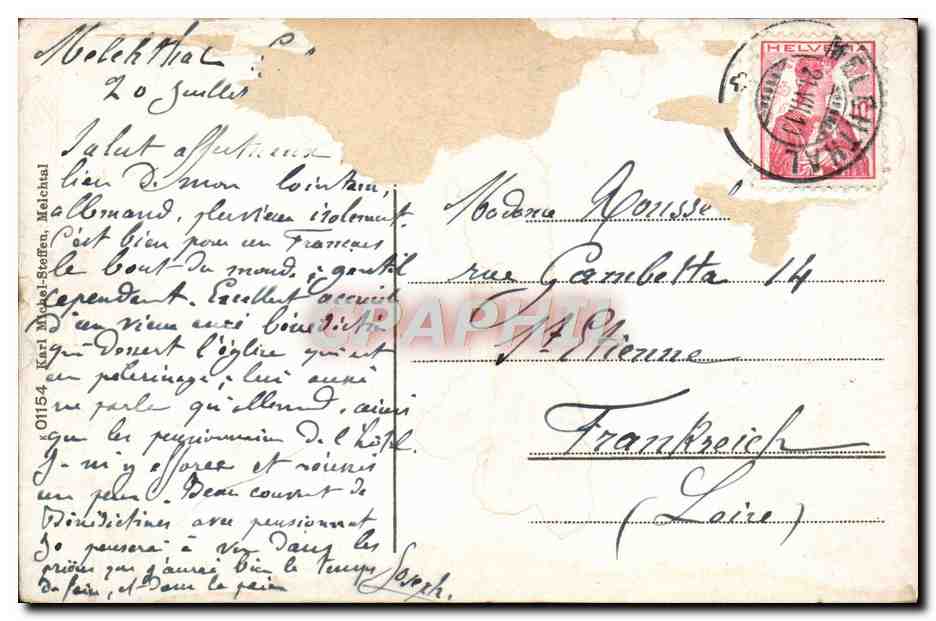 Melchthal
20 Juillet
Salut affectueux
lieu de mon lointain,
allemand, pluvieux isolement.
C'est bien pour un Français
le bout du monde, gentil
cependant. Excellent accueil
d'un vieux curé bénédictin
qui dessert l'église qui est
un pélerinage ; lui aussi
ne parle qu'allemand, ainsi
que les pensionnaires de l'hôtel.
Je m'y efforce et réussis
un peu. Beau couvent de
Bénédictines avec pensionnat
Je penserai à vous dans les
prières que j'aurai bien le temps
de faire, et dans la paix
Joseph.
K 01154 Karl Michel-Steffen, Melchtal
HELVETIA
MELCHTHAL
21.VII.13
Madame Rousse
rue Gambetta 14
St Etienne
Frankreich
(Loire)
CPAPHIL